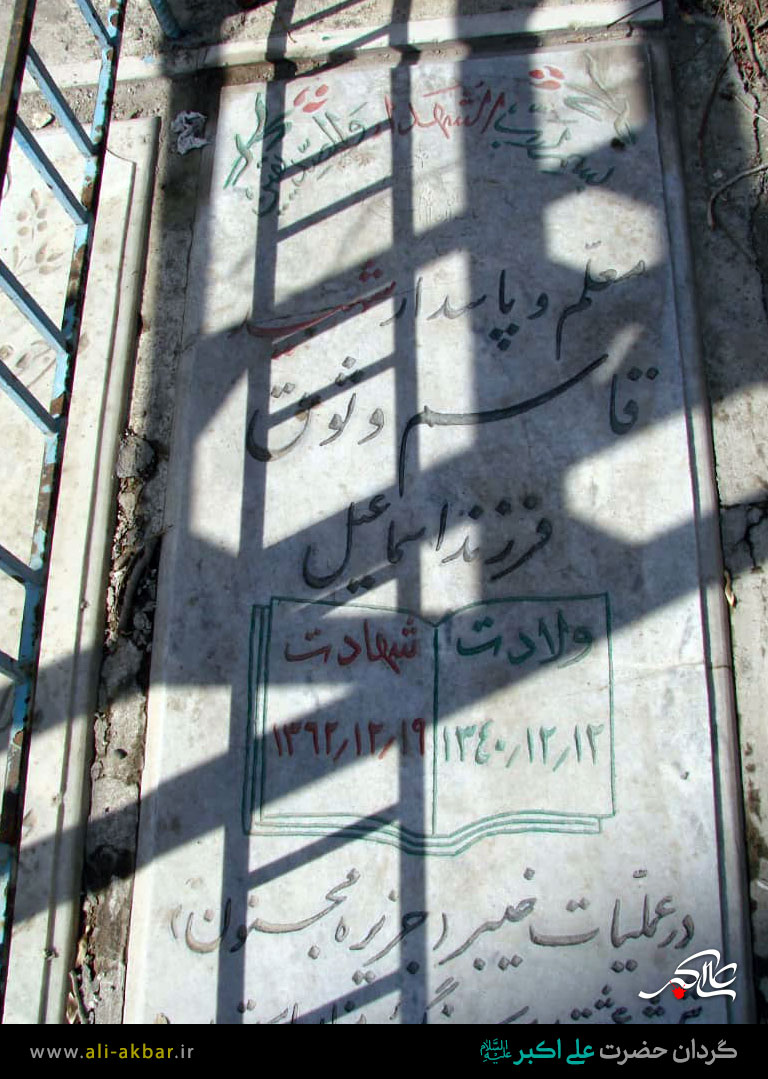 بسم رب الشهداء والصدیقین
معلّم و پاسدار شهید
قاسم وثوق
فرزند اسماعیل
ولادت شهادت
۱۳۴۰/۱۲/۱۲ ۱۳۶۲/۱۲/۱۹
در عملیّات خیبر (جزیره مجنون)
علی اکبر
گردان حضرت علی اکبر علیه السلام
www.ali-akbar.ir